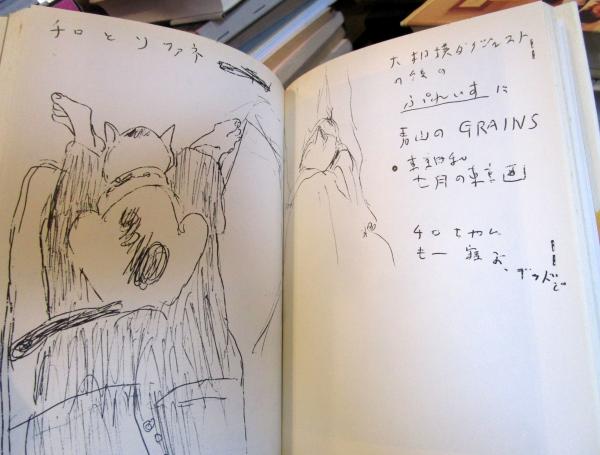 チロとソファネ
大相撲ダイジェスト
の後の
ぷれいす に
青山の GRAINS
七月の東京画
チロちゃん
も一寝ぶ、